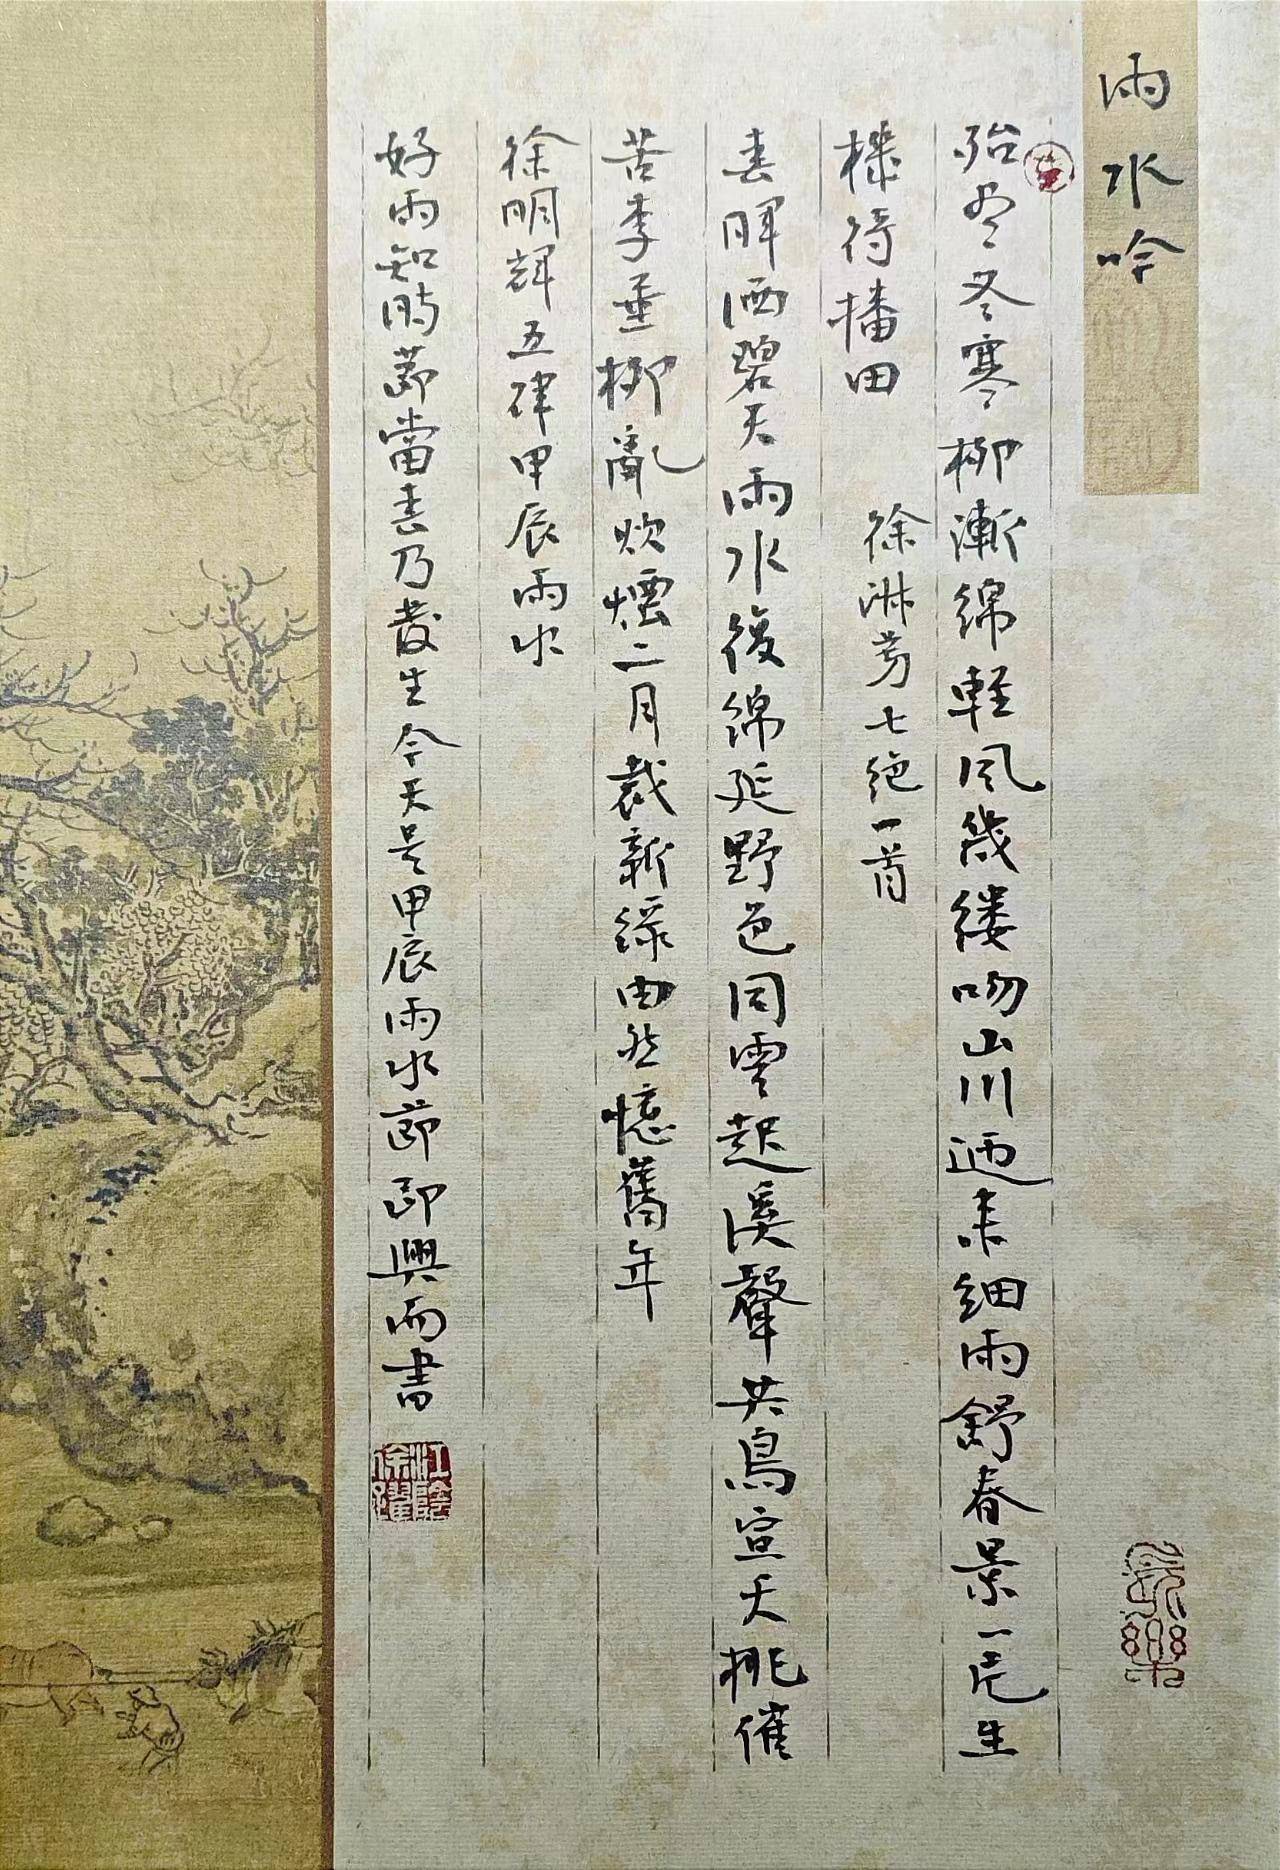 雨水吟
殆尽冬寒柳漸綿軽風幾縷吻山川迺来細雨舒春景一片生
機待播田 徐淋芳七绝一首
春暉洒碧天雨水後綿延野色同雲起溪聲共鳥宣夭桃催
苦李垂柳亂炊煙二月裁新緑由然憶舊年
徐明輝五律甲辰雨水
好雨知時節當春乃發生今天是甲辰雨水節即興而書
長樂